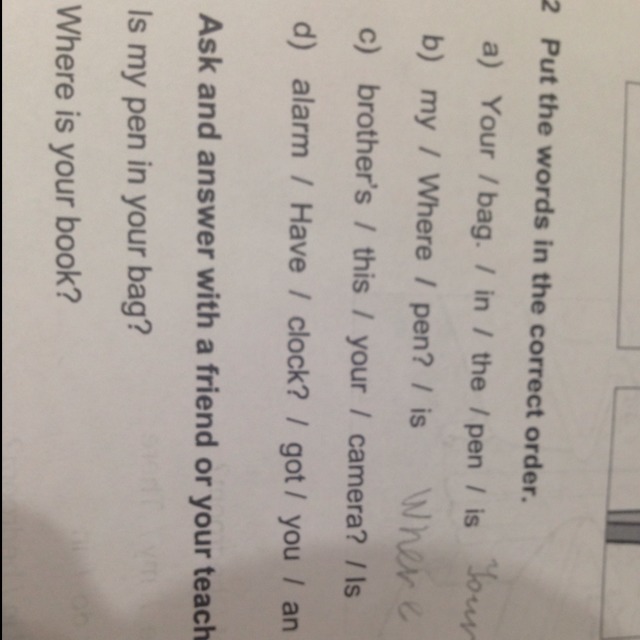 2 Put the words in the correct order.
a) Your / bag. / in / the / pen / is Your
b) my / Where / pen? / is Where
c) brother's / this / your / camera? / Is
d) alarm / Have / clock? / got / you / an
Ask and answer with a friend or your teach
Is my pen in your bag?
Where is your book?